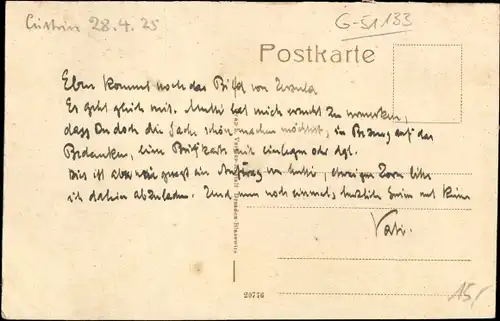 Cüstrin 28.4.25
G-51133
Postkarte
Eben kommt noch das Bild von Ursula
Es geht gleich mit. Mutti hat mich ersucht zu vermerken,
dass Du doch die Sache schön machen möchtest, in Bezug auf das
Bedanken, eine Briefkarte mit einlegen oder dgl.
Dies ist aber wie gesagt ein Auftrag von Mutti, etwaigen Zorn bitte
ich dahin abzuladen. Und nun noch einmal, herzlich Grüße und Küsse
Vati.
20776
15,-